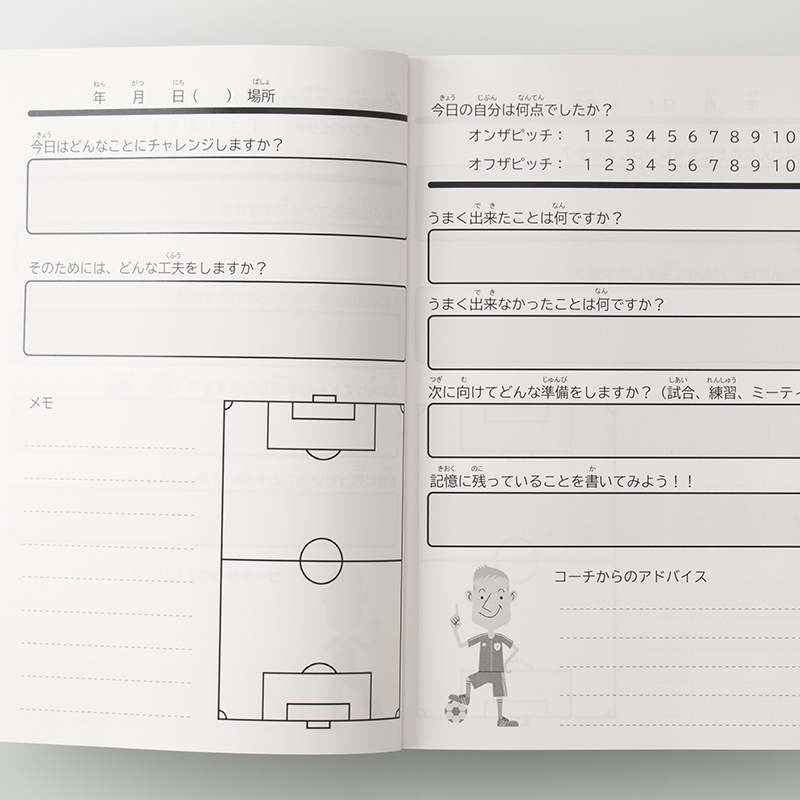 年 月 日( ) 場所
今日はどんなことにチャレンジしますか？
そのためには、どんな工夫をしますか？
メモ
今日の自分は何点でしたか？
オンザピッチ： 1 2 3 4 5 6 7 8 9 10
オフザピッチ： 1 2 3 4 5 6 7 8 9 10
うまく出来たことは何ですか？
うまく出来なかったことは何ですか？
次に向けてどんな準備をしますか？（試合、練習、ミーティ
記憶に残っていることを書いてみよう！！
コーチからのアドバイス